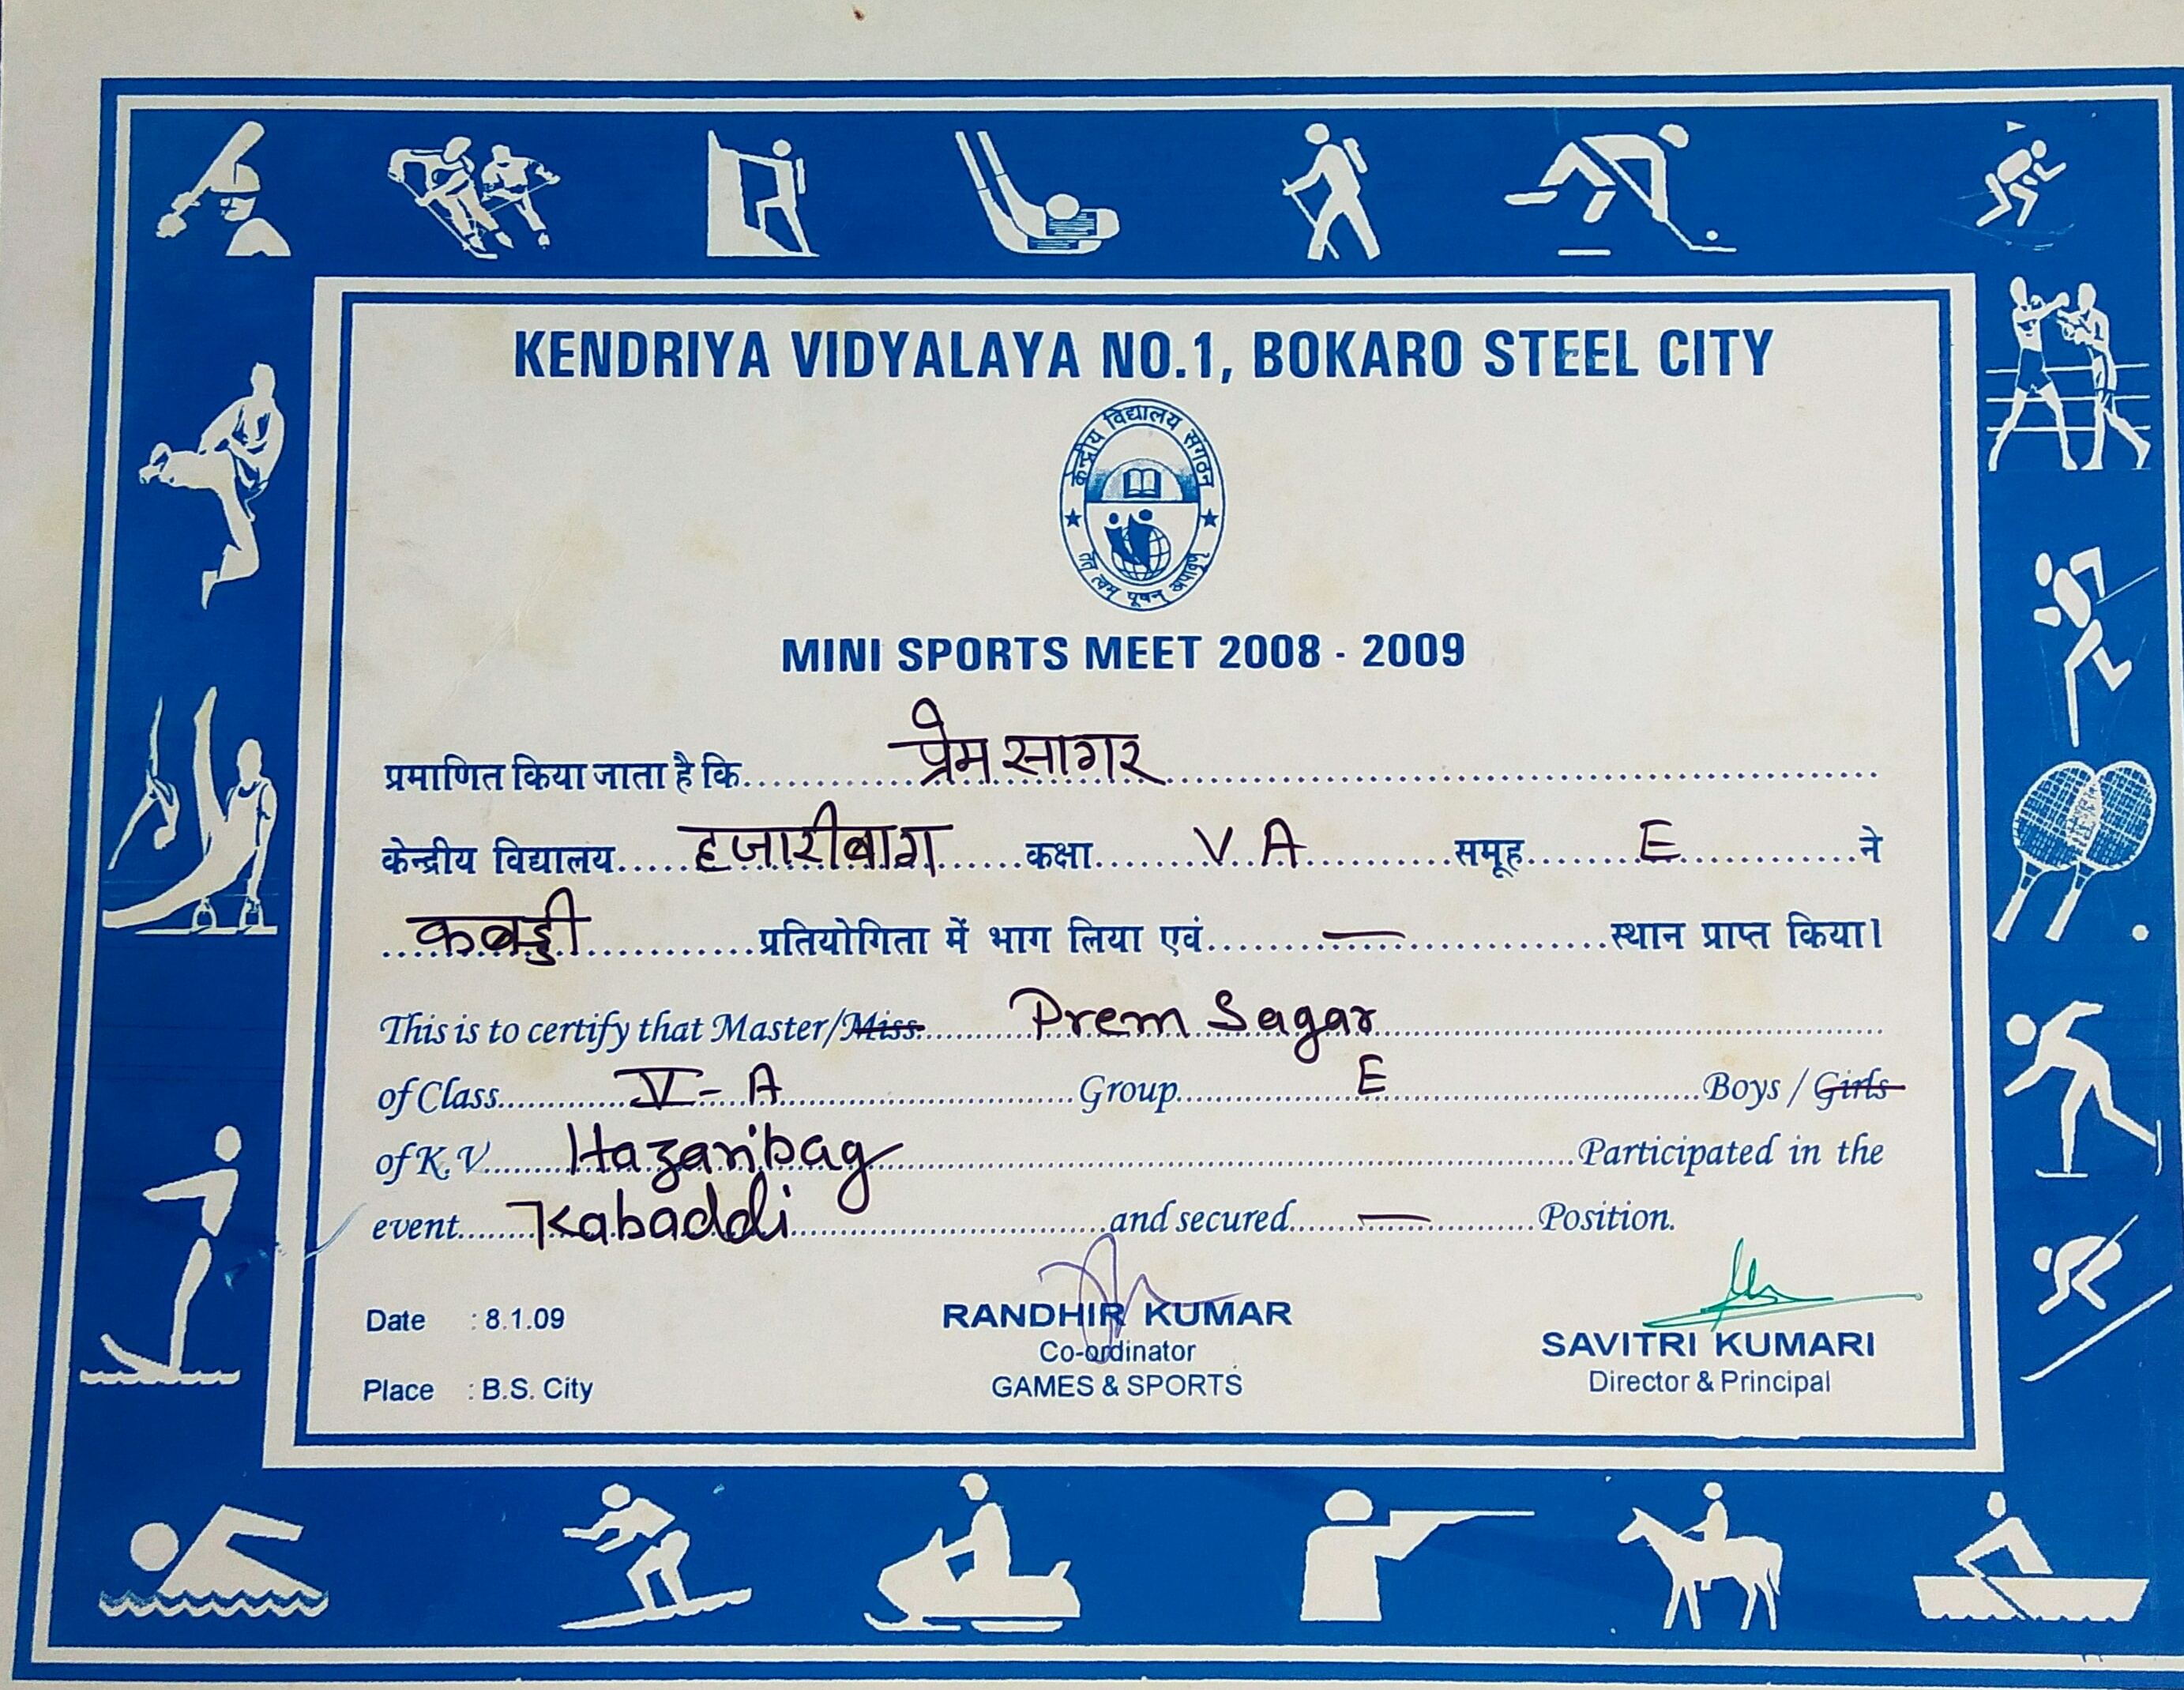 KENDRIYA VIDYALAYA NO.1, BOKARO STEEL CITY
केन्द्रीय विद्यालय संगठन
तत् त्वम् पूषन् अपावृणु
MINI SPORTS MEET 2008 - 2009
प्रमाणित किया जाता है कि प्रेम सागर
केन्द्रीय विद्यालय हजारीबाग कक्षा V A समूह E ने
कबड्डी प्रतियोगिता में भाग लिया एवं — स्थान प्राप्त किया।
This is to certify that Master/Miss. Prem Sagar
of Class V - A Group E Boys / Girls
of K.V. Hazaribag Participated in the
event Kabaddi and secured — Position.
Date : 8.1.09
Place : B.S. City
RANDHIR KUMAR
Co-ordinator
GAMES & SPORTS
SAVITRI KUMARI
Director & Principal